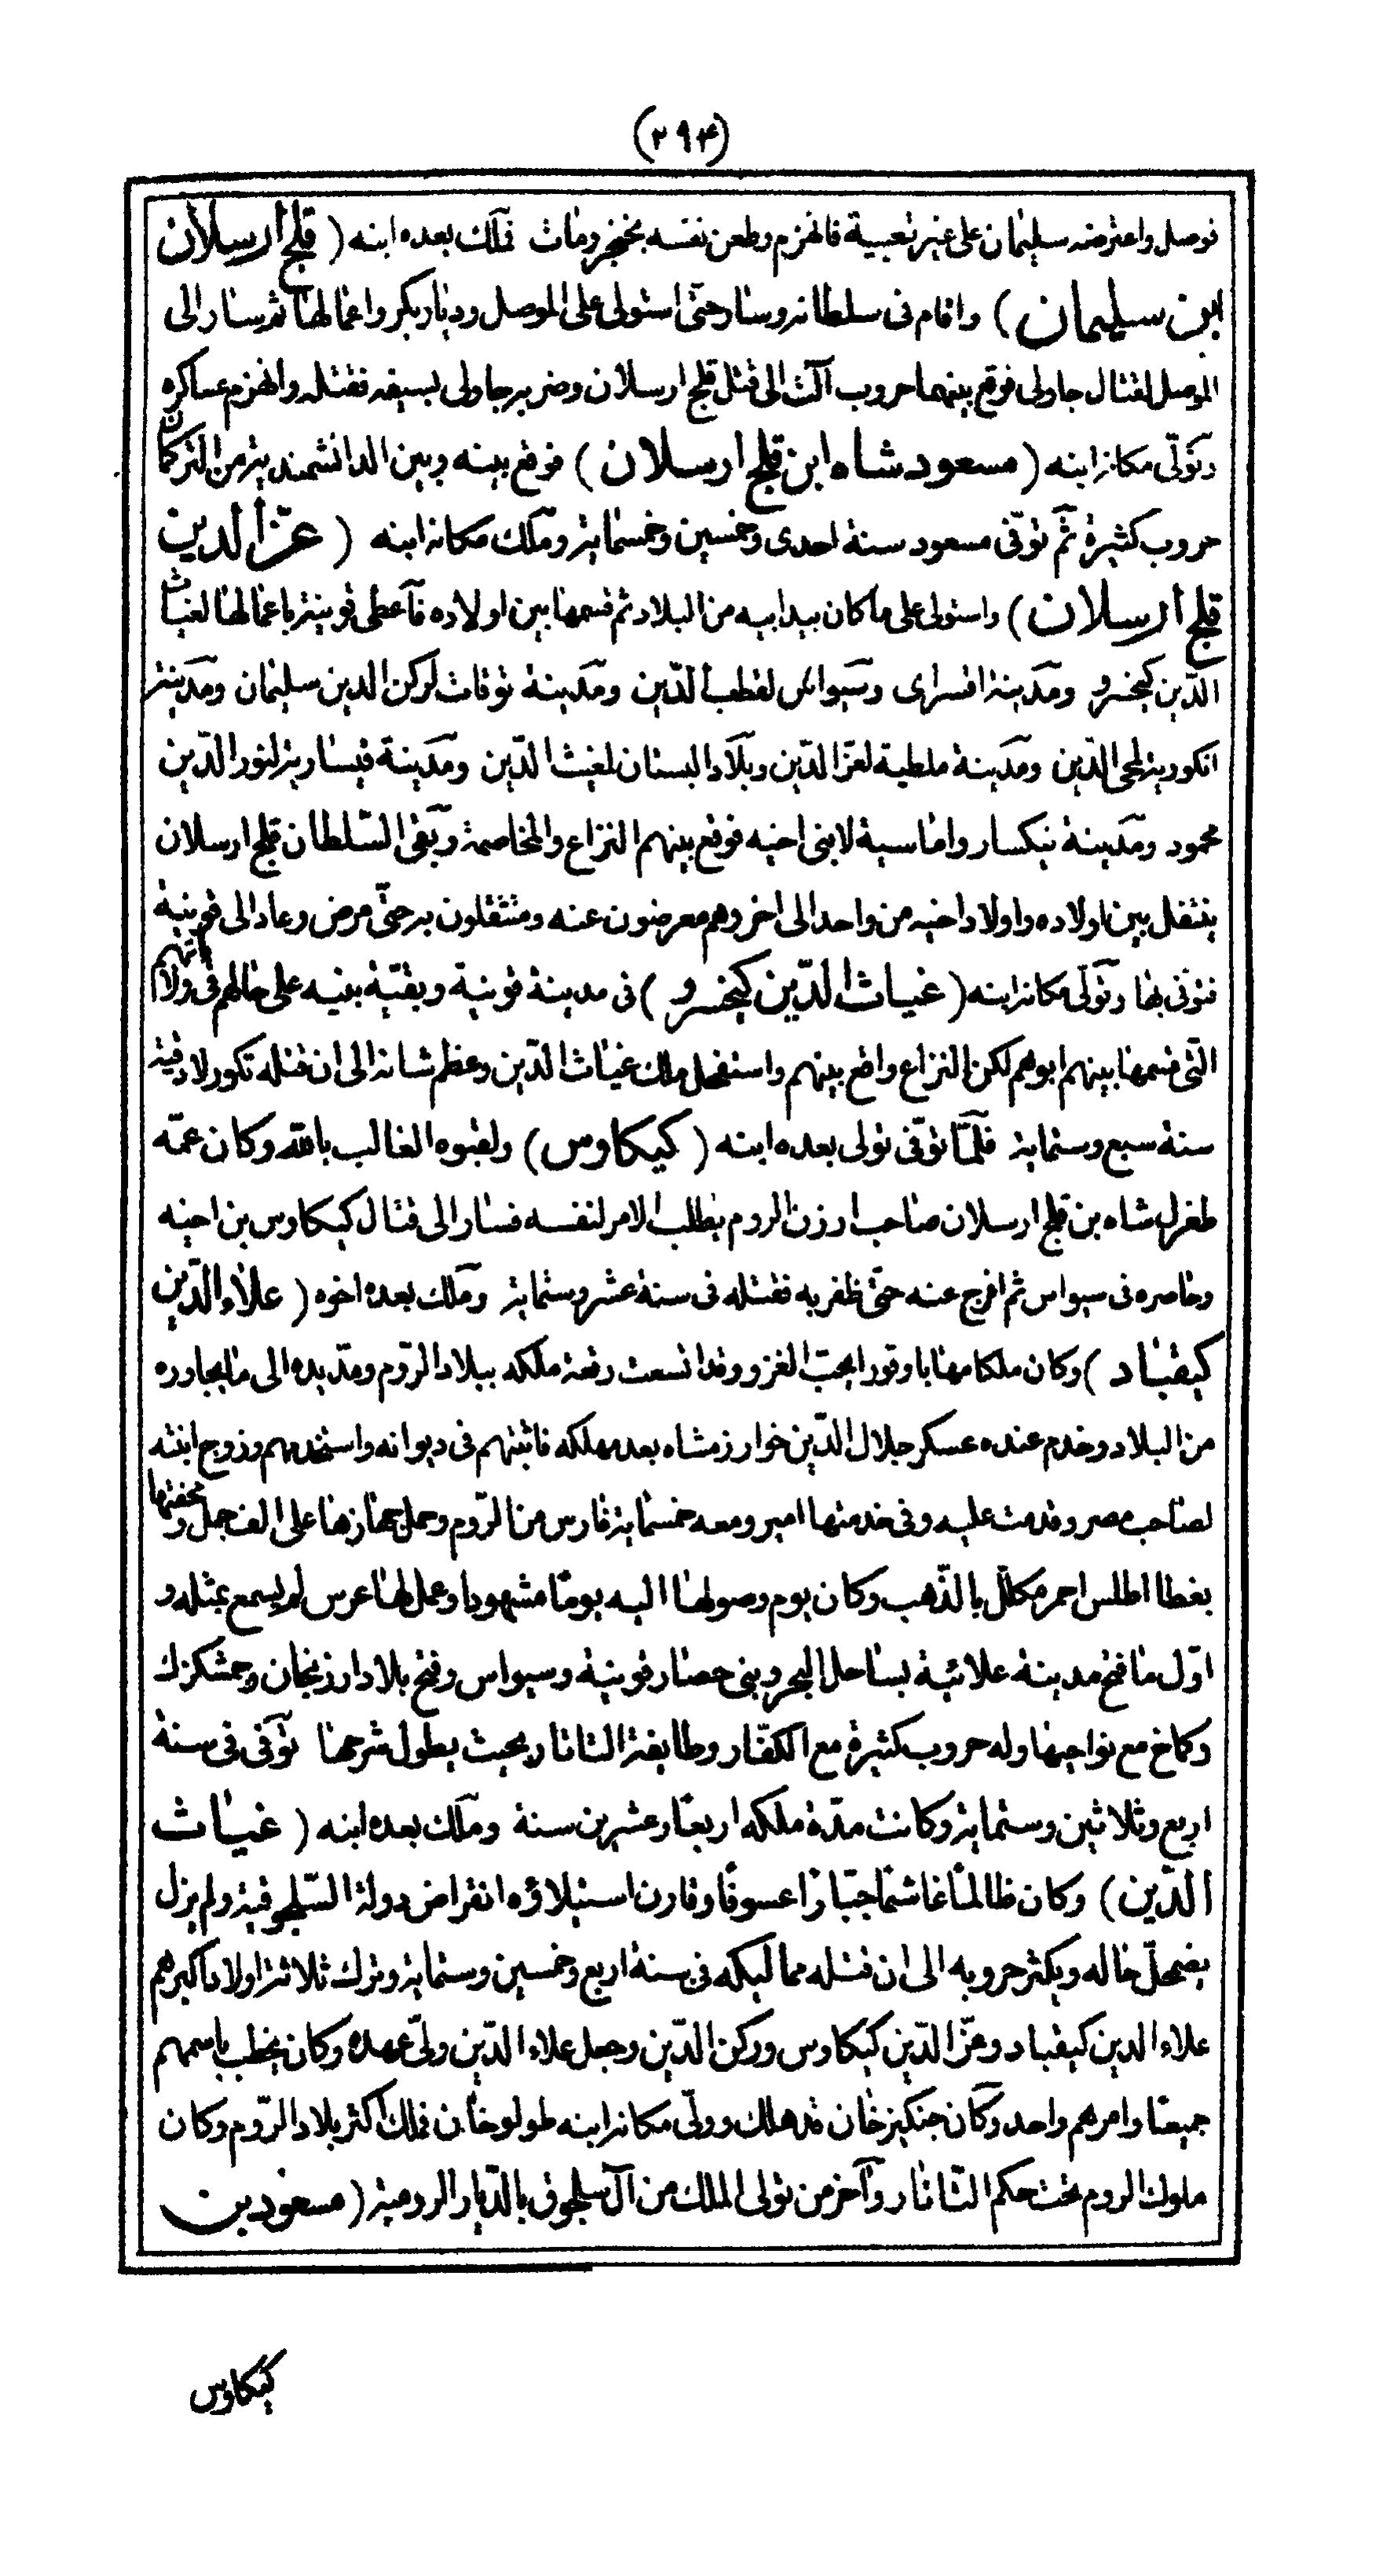 (٢٩٤)
فوصل واعترضه سليمان على غير تعبية فانهزم وطعن نفسه بخنجر ومات فملك بعده ابنه (قلج ارسلان
ابن سليمان) واقام فى سلطانه وسار حتّى استولى على الموصل وديار بكر واعمالها ثم سار الى
الموصل لقتال جاولى فوقع بينهما حروب آلت الى قتل قلج ارسلان وضربه جاولى بسيفه فقتله وانهزم عساكره
وتولّى مكانه ابنه (مسعود شاه ابن قلج ارسلان) فوقع بينه وبين الدانشمندية من التركمان
حروب كثيرة ثمّ توفّى مسعود سنة احدى وخمسين وخمسماية وملك مكانه ابنه (عزّ الدين
قلج ارسلان) واستولى على ما كان بيد ابيه من البلاد ثم قسمها بين اولاده فاعطى قونية باعمالها لغياث
الدّين كيخسرو ومدينة اقسراى وسيواس لقطب الدّين ومدينة توقات لركن الدين سليمان ومدينة
انكورية لمحى الدّين ومدينة ملطية لعزّ الدّين وبلاد البستان لغيث الدّين ومدينة قيسارية لنور الدّين
محمود ومدينة نيكسار واماسية لابنى اخيه فوقع بينهم النزاع والمخاصمة وبقى السّلطان قلج ارسلان
ينتقل بين اولاده واولاد اخيه من واحد الى اخر وهم معرضون عنه ومتثقلون به حتّى مرض وعاد الى قونية
فتوفى بها وتولّى مكانه ابنه (غياث الدّين كيخسرو) فى مدينة قونية وبقيّة بنيه على حالهم فى ولاياتهم
الّتى قسمها بينهم ابوهم لكن النزاع واقع بينهم واستفحل ملك غياث الدّين وعظم شانه الى ان قتله تكور لادقية
سنة سبع وستماية فلمّا توفّى تولى بعده ابنه (كيكاوس) ولقبوه الغالب بالله وكان عمّه
طغرل شاه بن قلج ارسلان صاحب ارزن الروم يطلب الامر لنفسه فسار الى قتال كيكاوس بن اخيه
وحاصره فى سيواس ثم افرج عنه حتّى ظفر به فقتله فى سنة عشر وستماية وملك بعده اخوه (علاء الدّين
كيقباد) وكان ملكا مهابا وقورا يحبّ الغزو وقد اتسعت رقعة ملكه ببلاد الرّوم ومدّ يده الى ما يجاوره
من البلاد وخدم عنده عسكر جلال الدّين خوارزمشاه بعد مهلكه فاثبتهم فى ديوانه واستخدمهم وزوج ابنته
لصاحب مصر وقدمت عليه وفى خدمتها امير ومعه خمسماية فارس من الرّوم وحمل جهازها على الف جمل ومحفتها
بغطا اطلس احمر مكلّل بالذّهب وكان يوم وصولها اليه يومًا مشهودا وعمل لها عرس لم يسمع بمثله و
اوّل ما فتح مدينة علائية بساحل البحر وبنى حصار قونية وسيواس وفتح بلاد ارزنجان وجمشكزك
وكماخ مع نواحيها وله حروب كثيرة مع الكفّار وطايفة التاتار بحيث يطول شرحها توّفى فى سنة
اربع وثلاثين وستماية وكانت مدّة ملكه اربعًا وعشرين سنة وملك بعده ابنه (غياث
الدّين) وكان ظالمًا غاشمًا جبّارًا عسوفًا وقارن استيلاؤه انقراض دولة السّلجوقية ولم يزل
يضمحلّ حاله ويكثر حروبه الى ان قتله مماليكه فى سنة اربع وخمسين وستماية وترك ثلاثة اولاد اكبرهم
علاء الدين كيقباد وعزّ الدّين كيكاوس وركن الدّين وجعل علاء الدّين ولىّ عهده وكان يخطب باسمهم
جميعًا وامرهم واحد وكان جنكيز خان قد هلك وولّى مكانه ابنه طولو خان فملك اكثر بلاد الرّوم وكان
ملوك الروم تحت حكم التّاتار وآخر من تولى الملك من آل سلجوق بالدّيار الرومية (مسعود بن
كيكاوس